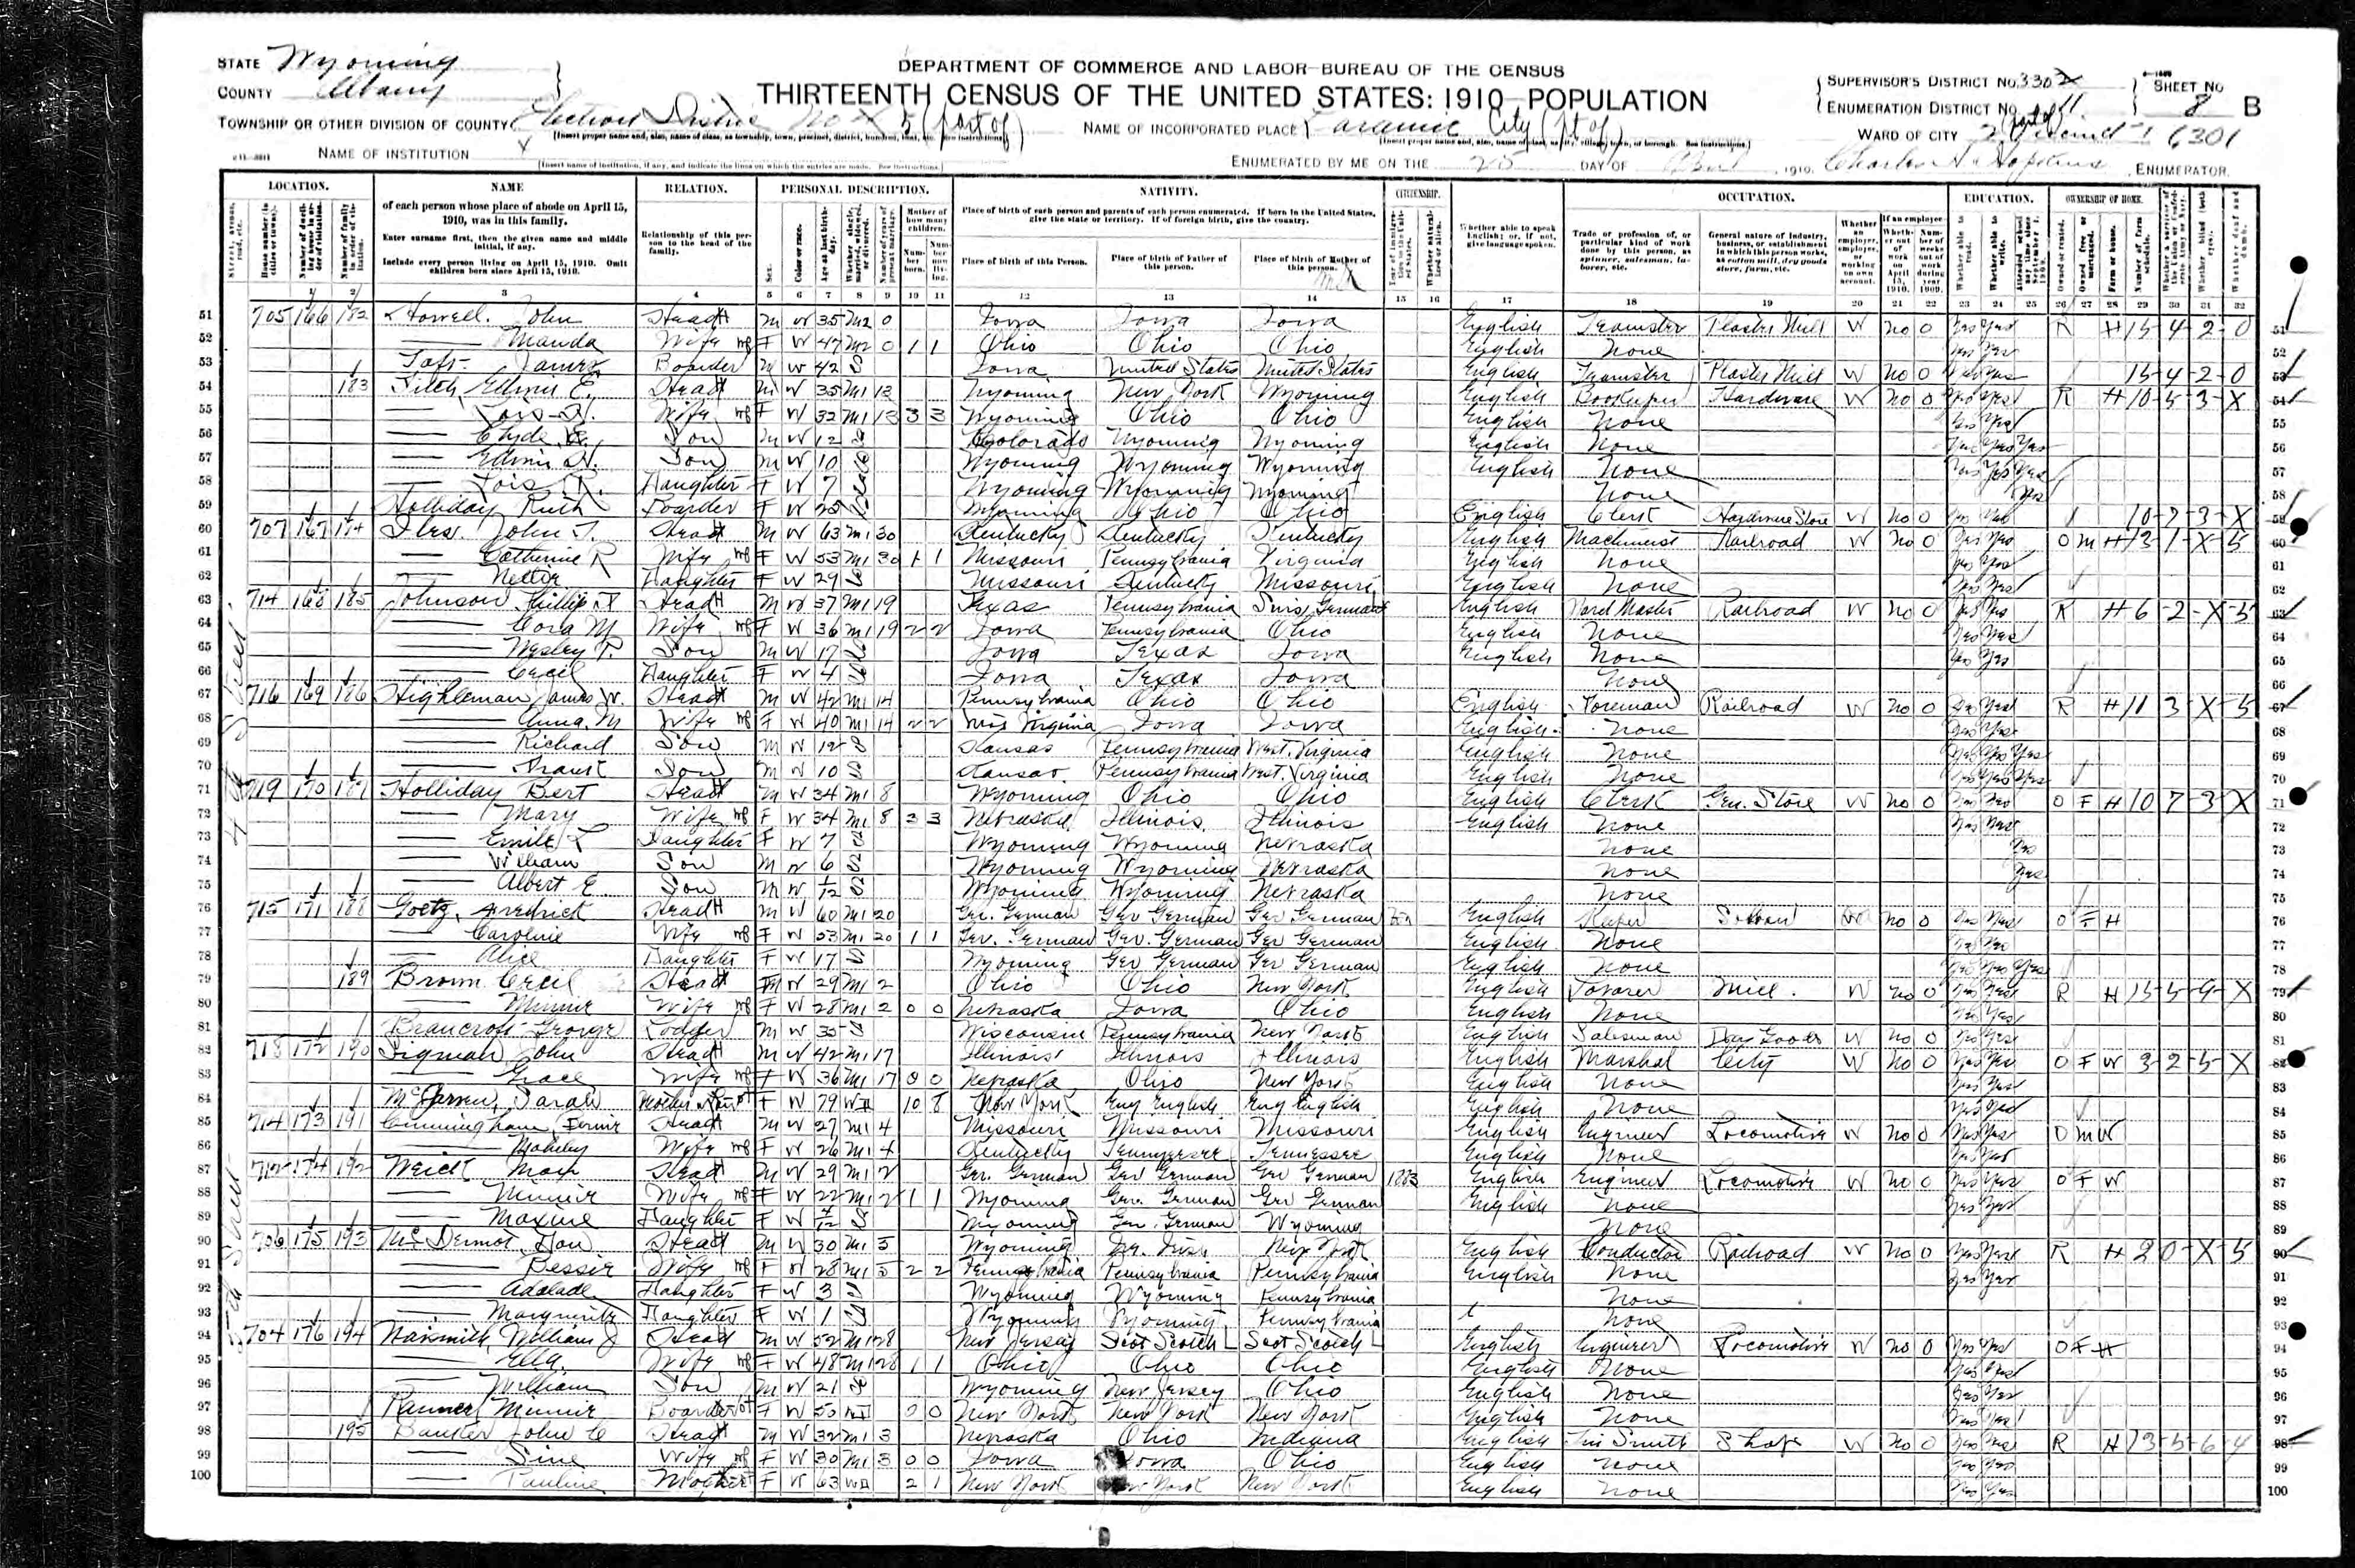 STATE Wyoming
COUNTY Albany
DEPARTMENT OF COMMERCE AND LABOR—BUREAU OF THE CENSUS
THIRTEENTH CENSUS OF THE UNITED STATES: 1910—POPULATION
SUPERVISOR'S DISTRICT NO. 330
ENUMERATION DISTRICT NO. part of 11
SHEET NO 8 B
TOWNSHIP OR OTHER DIVISION OF COUNTY Election District No 5 (part of)
NAME OF INCORPORATED PLACE Laramie City (pt of)
WARD OF CITY 2 Precinct 1 6301
NAME OF INSTITUTION X
ENUMERATED BY ME ON THE 25 DAY OF April, 1910. Charles H. Hopkins, ENUMERATOR.
LOCATION. NAME RELATION. PERSONAL DESCRIPTION. NATIVITY. CITIZENSHIP. OCCUPATION. EDUCATION. OWNERSHIP OF HOME.
of each person whose place of abode on April 15, 1910, was in this family.
Enter surname first, then the given name and middle initial, if any.
Include every person living on April 15, 1910. Omit children born since April 15, 1910.
Relationship of this person to the head of the family.
Place of birth of each person and parents of each person enumerated. If born in the United States, give the state or territory. If of foreign birth, give the country.
Place of birth of this Person. Place of birth of Father of this person. Place of birth of Mother of this person.
Whether able to speak English; or, if not, give language spoken.
Trade or profession of, or particular kind of work done by this person, as spinner, salesman, laborer, etc.
General nature of industry, business, or establishment in which this person works, as cotton mill, dry goods store, farm, etc.
3 4 5 6 7 8 9 10 11 12 13 14 15 16 17 18 19 20 21 22 23 24 25 26 27 28 29 30 31 32
51 705 166 182 Howell John Head M W 35 M2 0 Iowa Iowa Iowa English Teamster Plaster Mill W No 0 Yes Yes R H 15-4-2-0
52 — Manda Wife F W 47 M2 0 1 1 Ohio Ohio Ohio English None Yes Yes
53 Taft James Boarder M W 42 S Iowa United States United States English Teamster Plaster Mill W No 0 Yes Yes 15-4-2-0
54 183 Fitch Edwin E. Head M W 35 M1 13 Wyoming New York Wyoming English Bookeeper Hardware W No 0 Yes Yes R H 10-5-3-X
55 — Lois Wife F W 32 M1 13 3 3 Wyoming Ohio Ohio English None Yes Yes
56 — Clyde Son M W 12 S Colorado Wyoming Wyoming English None Yes Yes Yes
57 — Edwin Son M W 10 S Wyoming Wyoming Wyoming English None Yes Yes Yes
58 — Lois R. Daughter F W 7 S Wyoming Wyoming Wyoming None Yes
59 Holliday Ruth Boarder F W 25 S Wyoming Ohio Ohio English Clerk Hardware Store W No 0 Yes Yes 10-7-3-X
60 707 167 184 Iles John T. Head M W 63 M1 30 Kentucky Kentucky Kentucky English Machinist Railroad W No 0 Yes Yes O M H 13-1-X-5
61 — Catherine R Wife F W 53 M1 30 1 1 Missouri Pennsylvania Virginia English None Yes Yes
62 — Nettie Daughter F W 29 S Missouri Kentucky Missouri English None Yes Yes
63 714 168 185 Johnson Phillip Head M W 37 M1 19 Texas Pennsylvania Swis German English Yard Master Railroad W No 0 Yes Yes R H 6-2-X-5
64 — Cora M Wife F W 36 M1 19 2 2 Iowa Pennsylvania Ohio English None Yes Yes
65 — Wesley P. Son M W 17 S Iowa Texas Iowa English None Yes Yes
66 — Cecil Daughter F W 4 S Iowa Texas Iowa None
67 716 169 186 Highleman James W. Head M W 42 M1 14 Pennsylvania Ohio Ohio English Foreman Railroad W No 0 Yes Yes R H 11 3-X-5
68 — Anna M Wife F W 40 M1 14 2 2 West Virginia Iowa Iowa English None Yes Yes
69 — Richard Son M W 12 S Kansas Pennsylvania West Virginia English None Yes Yes Yes
70 — Frank Son M W 10 S Kansas Pennsylvania West Virginia English None Yes Yes Yes
71 719 170 187 Holliday Bert Head M W 34 M1 8 Wyoming Ohio Ohio English Clerk Gen. Store W No 0 Yes Yes O F H 10 7-3-X
72 — Mary Wife F W 34 M1 8 3 3 Nebraska Illinois Illinois English None Yes Yes
73 — Emile L Daughter F W 7 S Wyoming Wyoming Nebraska None Yes
74 — William Son M W 6 S Wyoming Wyoming Nebraska None Yes
75 — Albert E. Son M W 1/12 S Wyoming Wyoming Nebraska None
76 715 171 188 Goetz, Fredrick Head M W 60 M1 20 Ger. German Ger German Ger German English Keeper Saloon No 0 Yes Yes O F H
77 — Caroline Wife F W 53 M1 20 1 1 Ger. German Ger. German Ger German English None Yes Yes
78 — Alice Daughter F W 17 S Wyoming Ger German Ger German English None Yes Yes Yes
79 189 Brown Cecil Head M W 29 M1 2 Ohio Ohio New York English Mill. W No 0 Yes Yes R H 15-5-9-X
80 — Minnie Wife F W 28 M1 2 0 0 Nebraska Iowa Ohio English None Yes Yes
81 Brancroft George Lodger M W 35 S Wisconsin Pennsylvania New York English Salesman Dry Goods W No 0 Yes Yes
82 718 172 190 Sigman John Head M W 42 M1 17 Illinois Illinois Illinois English Marshal City W No 0 Yes Yes O F W 3-2-5-X
83 — Grace Wife F W 36 M1 17 0 0 Nebraska Ohio New York English None Yes Yes
84 Sarah Mother in law F W 79 Wd 10 8 New York Eng English Eng English English None Yes Yes
85 714 173 191 Cunningham, Fernie Head M W 27 M1 4 Missouri Missouri Missouri English Engineer Locomotive W No 0 Yes Yes O M W
86 — Wife F W 26 M1 4 Kentucky Tennessee Tennessee English None Yes Yes
87 712 174 192 Weick Max Head M W 29 M1 2 Ger. German Ger German Ger German 1883 English Engineer Locomotive W No 0 Yes Yes O F W
88 — Minnie Wife F W 22 M1 2 1 1 Wyoming Ger. German Ger German English None Yes Yes
89 — Maxine Daughter F W 4/12 S Wyoming Ger. German Wyoming None
90 706 175 193 McDermot, Don Head M W 30 M1 5 Wyoming Ir. Irish New York English Conductor Railroad W No 0 Yes Yes R H 20-X-5
91 — Bessie Wife F W 28 M1 5 2 2 Pennsylvania Pennsylvania Pennsylvania English None Yes Yes
92 — Adalade Daughter F W 3 S Wyoming Wyoming Pennsylvania None
93 — Marguerite Daughter F W 1 S Wyoming Wyoming Pennsylvania None
94 704 176 194 Naismith, William J Head M W 52 M1 28 New Jersey Scot Scotch Scot Scotch English Engineer Locomotive W No 0 Yes Yes O F H
95 — Ella. Wife F W 48 M1 28 1 1 Ohio Ohio Ohio English None Yes Yes
96 — William Son M W 21 S Wyoming New Jersey Ohio English None Yes Yes
97 Minnie Boarder F W 50 Wd 0 0 New York New York New York English None Yes Yes
98 195 Banker John C Head M W 32 M1 3 Nebraska Ohio Indiana English Tin Smith Shop W No 0 Yes Yes R H 13-5-6-4
99 — Sine Wife F W 30 M1 3 0 0 Iowa Iowa Ohio English None Yes Yes
100 — Pauline Mother F W 63 Wd 2 1 New York New York New York English None Yes Yes